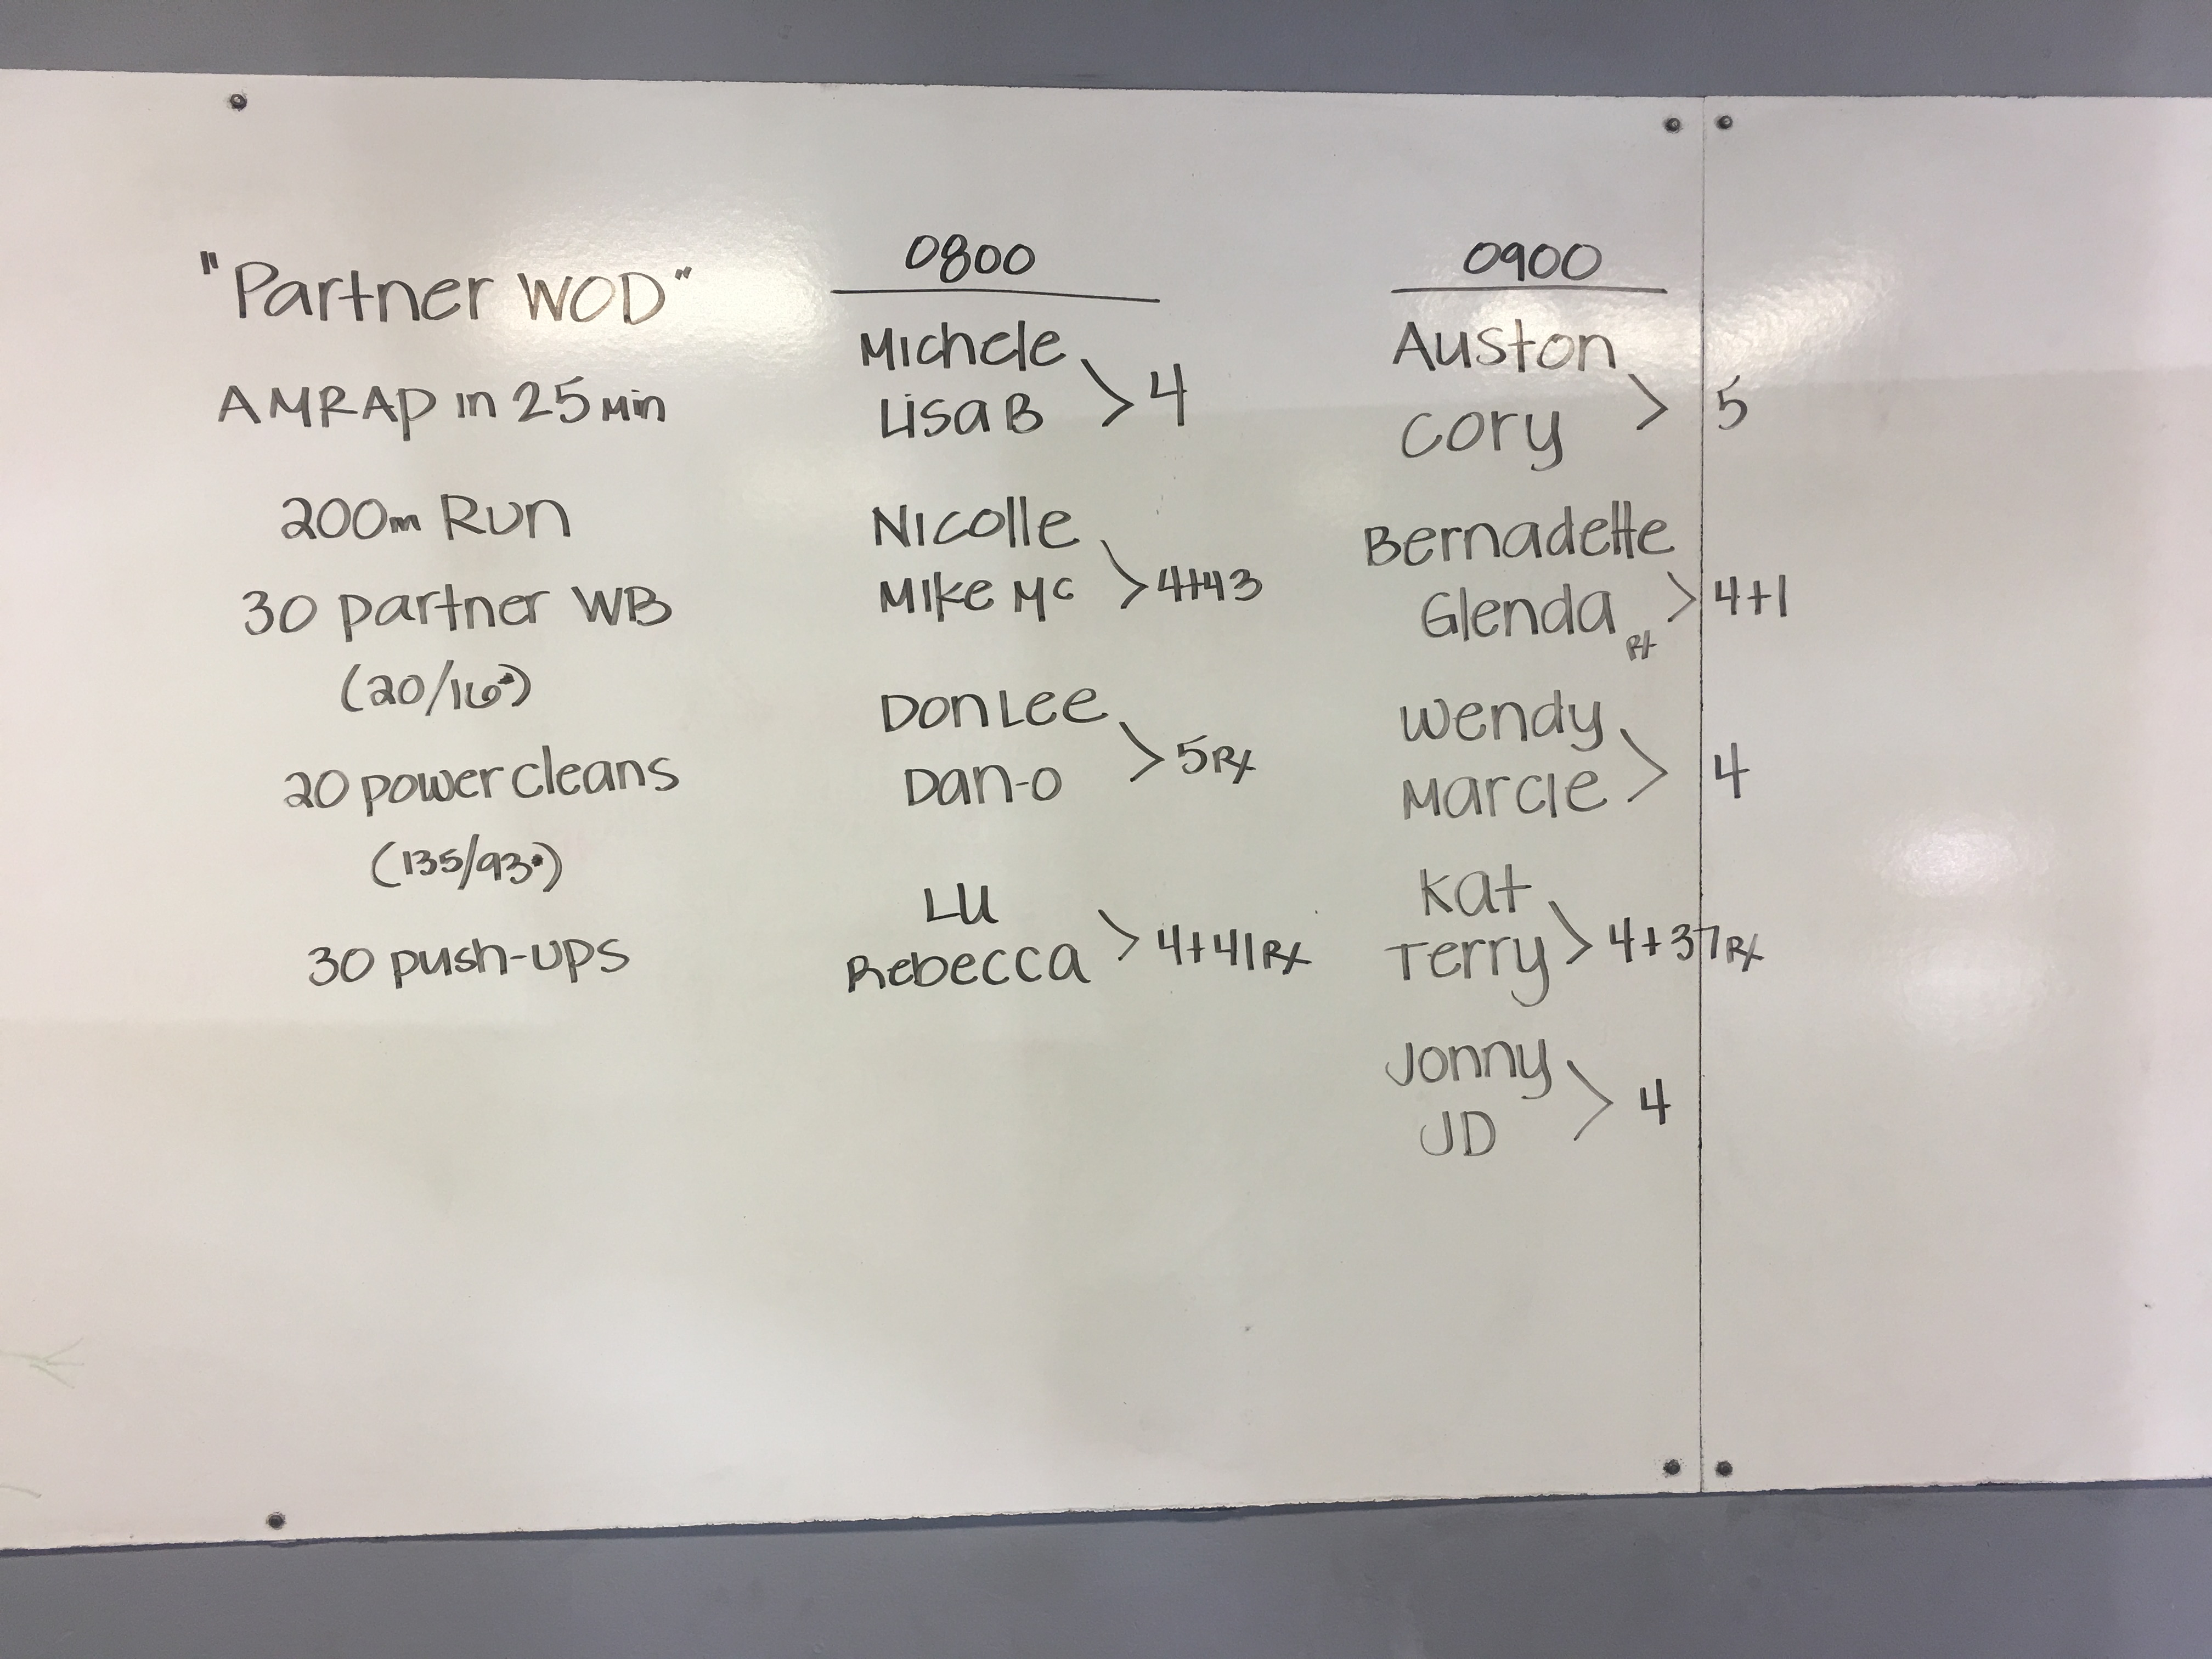 "Partner WOD"
AMRAP in 25 min
200m Run
30 partner WB
(20/16#)
20 power cleans
(135/93#)
30 push-ups
0800
Michele
Lisa B > 4
Nicolle
Mike Mc > 4+43
Don Lee
Dan-o > 5 Rx
Lu
Rebecca > 4+41 Rx
0900
Auston
Cory > 5
Bernadette
Glenda Rx > 4+1
Wendy
Marcie > 4
Kat
Terry > 4+37 Rx
Jonny
JD > 4